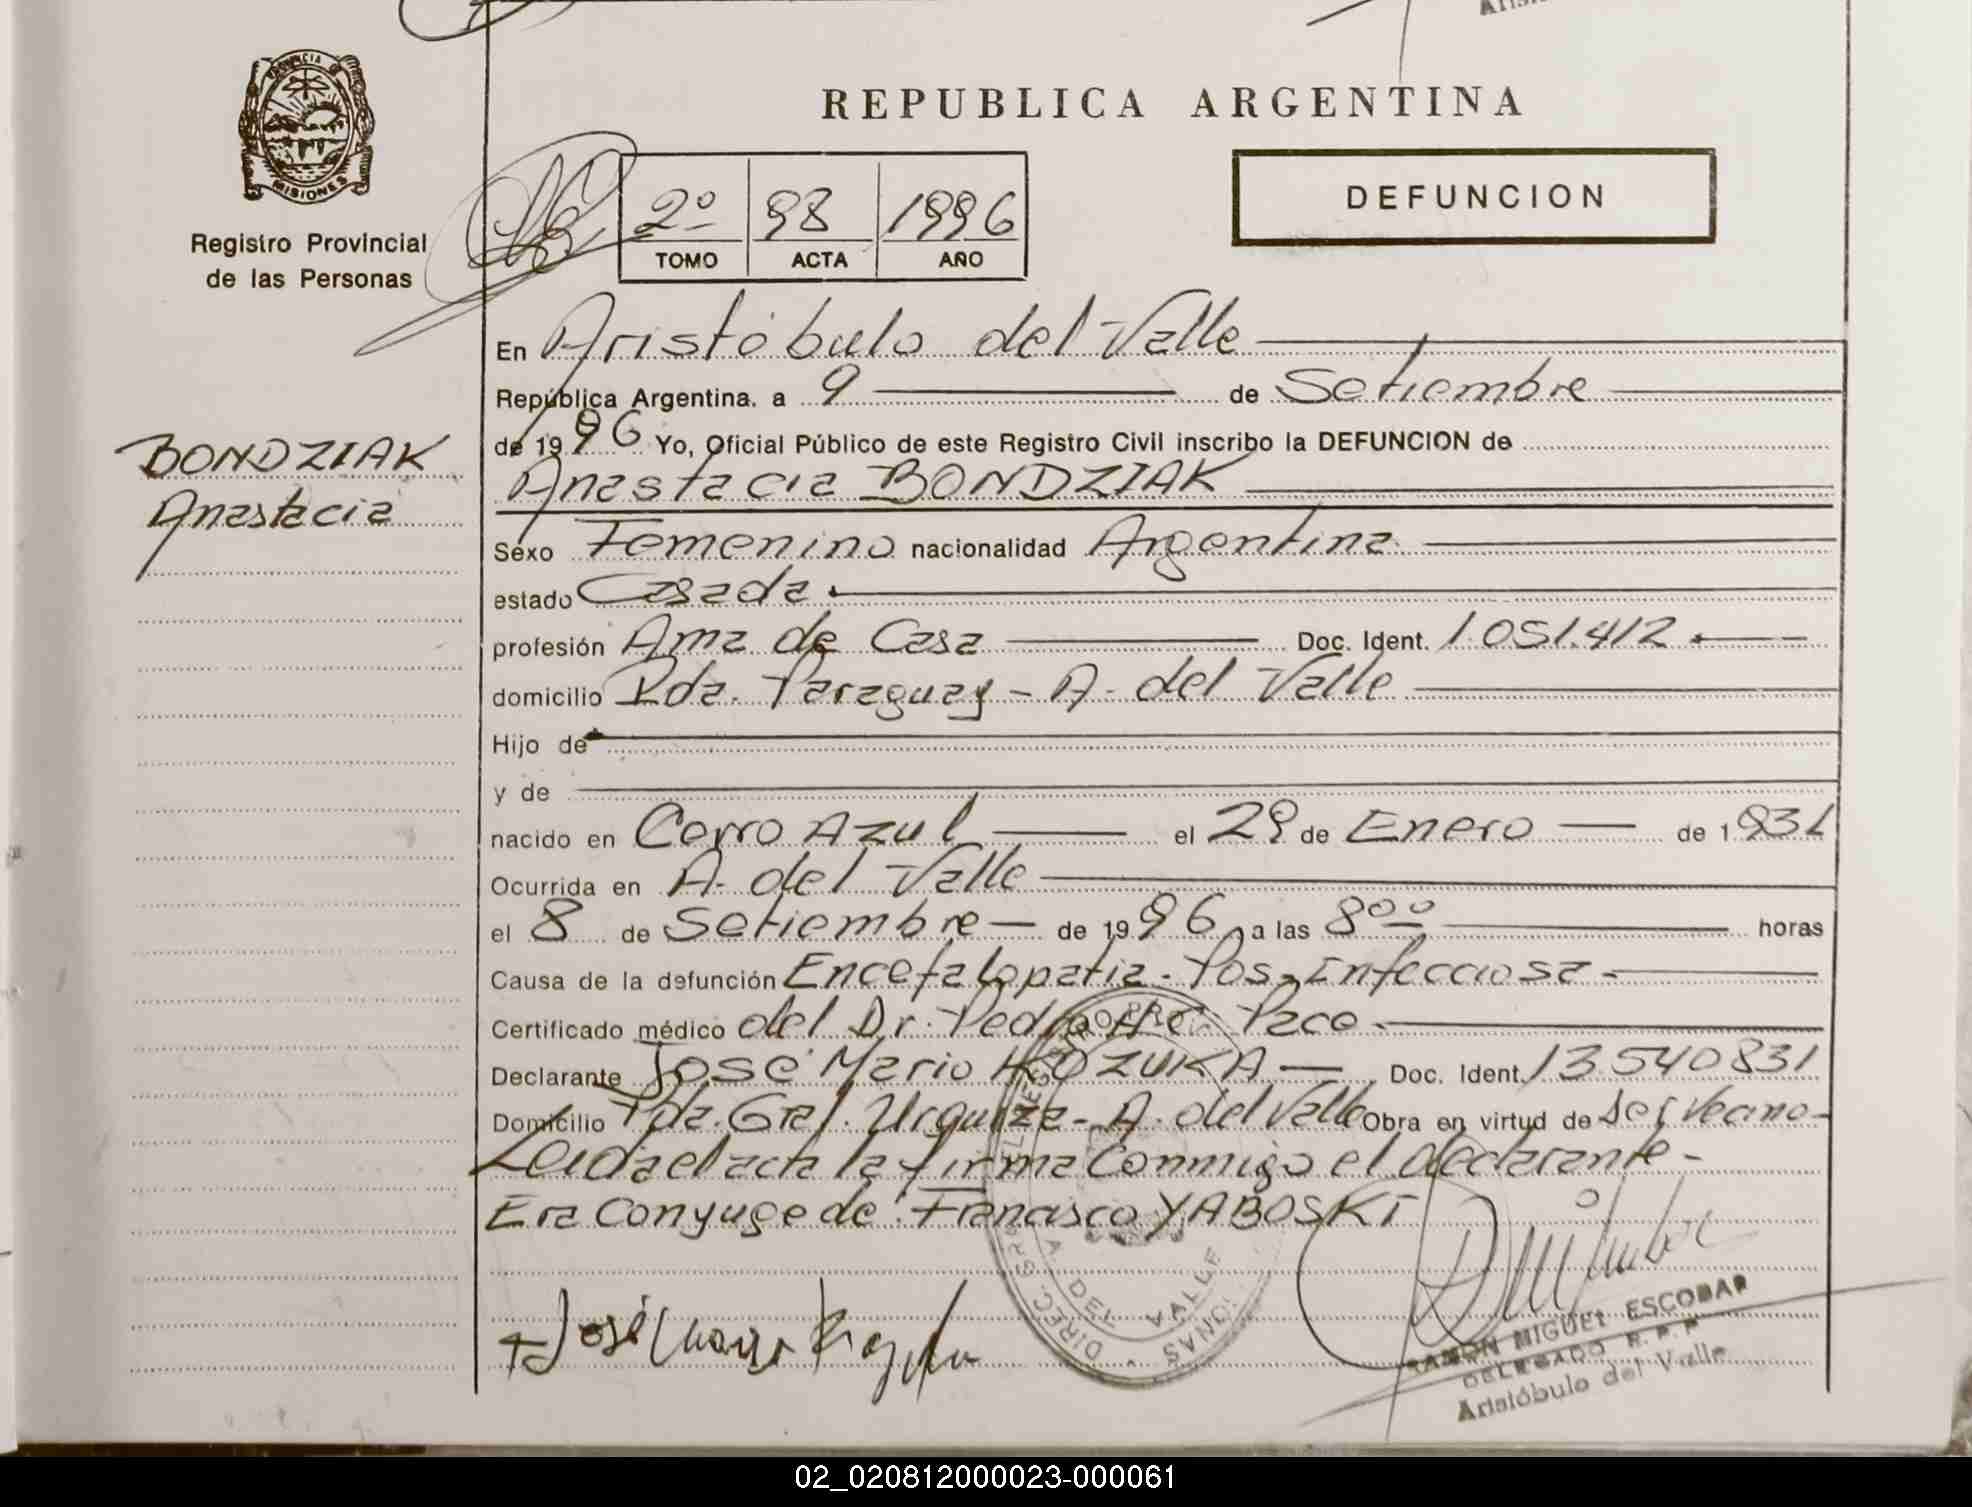 REPUBLICA ARGENTINA
PROVINCIA
MISIONES
Registro Provincial
de las Personas
2º 98 1996
TOMO ACTA AÑO
DEFUNCION
BONDZIAK
Anastacia
En Aristóbulo del Valle
República Argentina. a 9 de Setiembre
de 1996 Yo, Oficial Público de este Registro Civil inscribo la DEFUNCION de
Anastacia BONDZIAK
Sexo Femenino nacionalidad Argentina
estado Casada
profesión Ama de Casa Doc. Ident. 1.051.412
domicilio Pda. Paraguay - A. del Valle
Hijo de
y de
nacido en Cerro Azul el 29 de Enero de 1931
Ocurrida en A. del Valle
el 8 de Setiembre de 1996 a las 8⁰⁰ horas
Causa de la defunción Encefalopatia - Pos-Infecciosa
Certificado médico del Dr. Pedro Paco
Declarante José Mario KOZUKA Doc. Ident. 13.540831
Domicilio Pda. Gral. Urquiza - A. del Valle Obra en virtud de ser vecino-
Leida el acta la firma Conmigo el declarante-
Era Conyuge de: Francisco YABOSKI
José
DIREC. GRAL.
A. DEL VALLE
RAMON MIGUEL ESCOBAR
DELEGADO R. P. P.
Aristóbulo del Valle
02_020812000023-000061